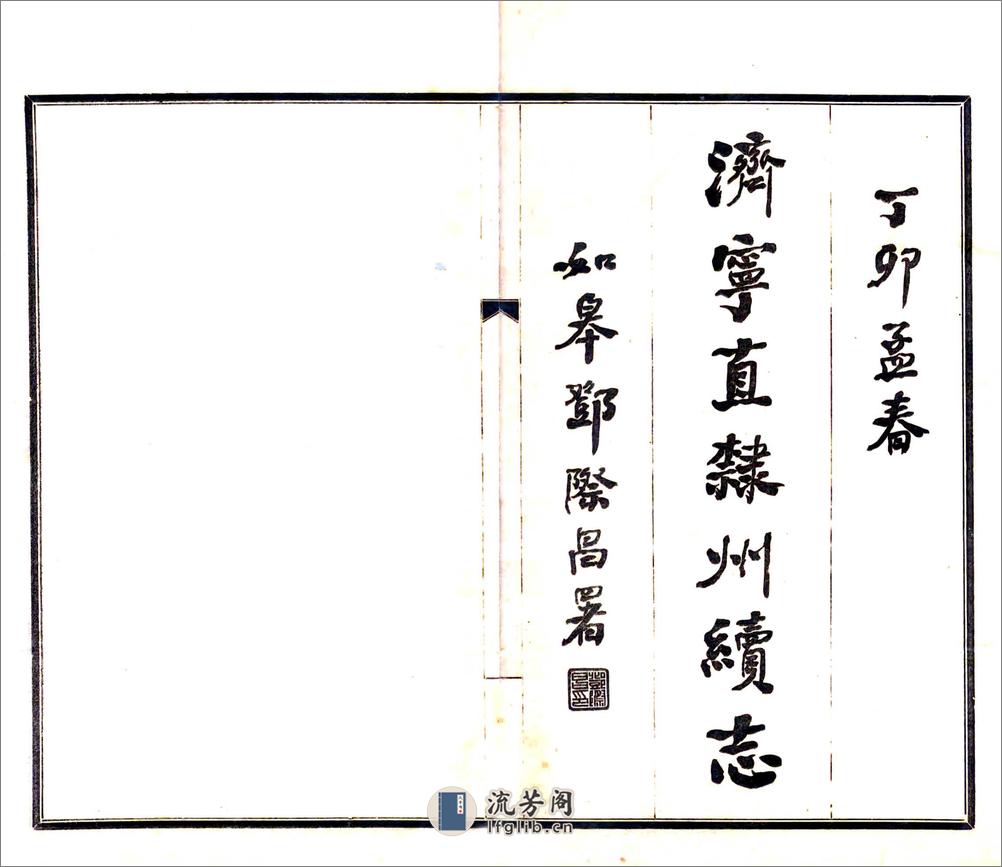 丁卯孟春
濟寧直隸州續志
如皋鄧際昌署
流芳阁
lfglib.cn